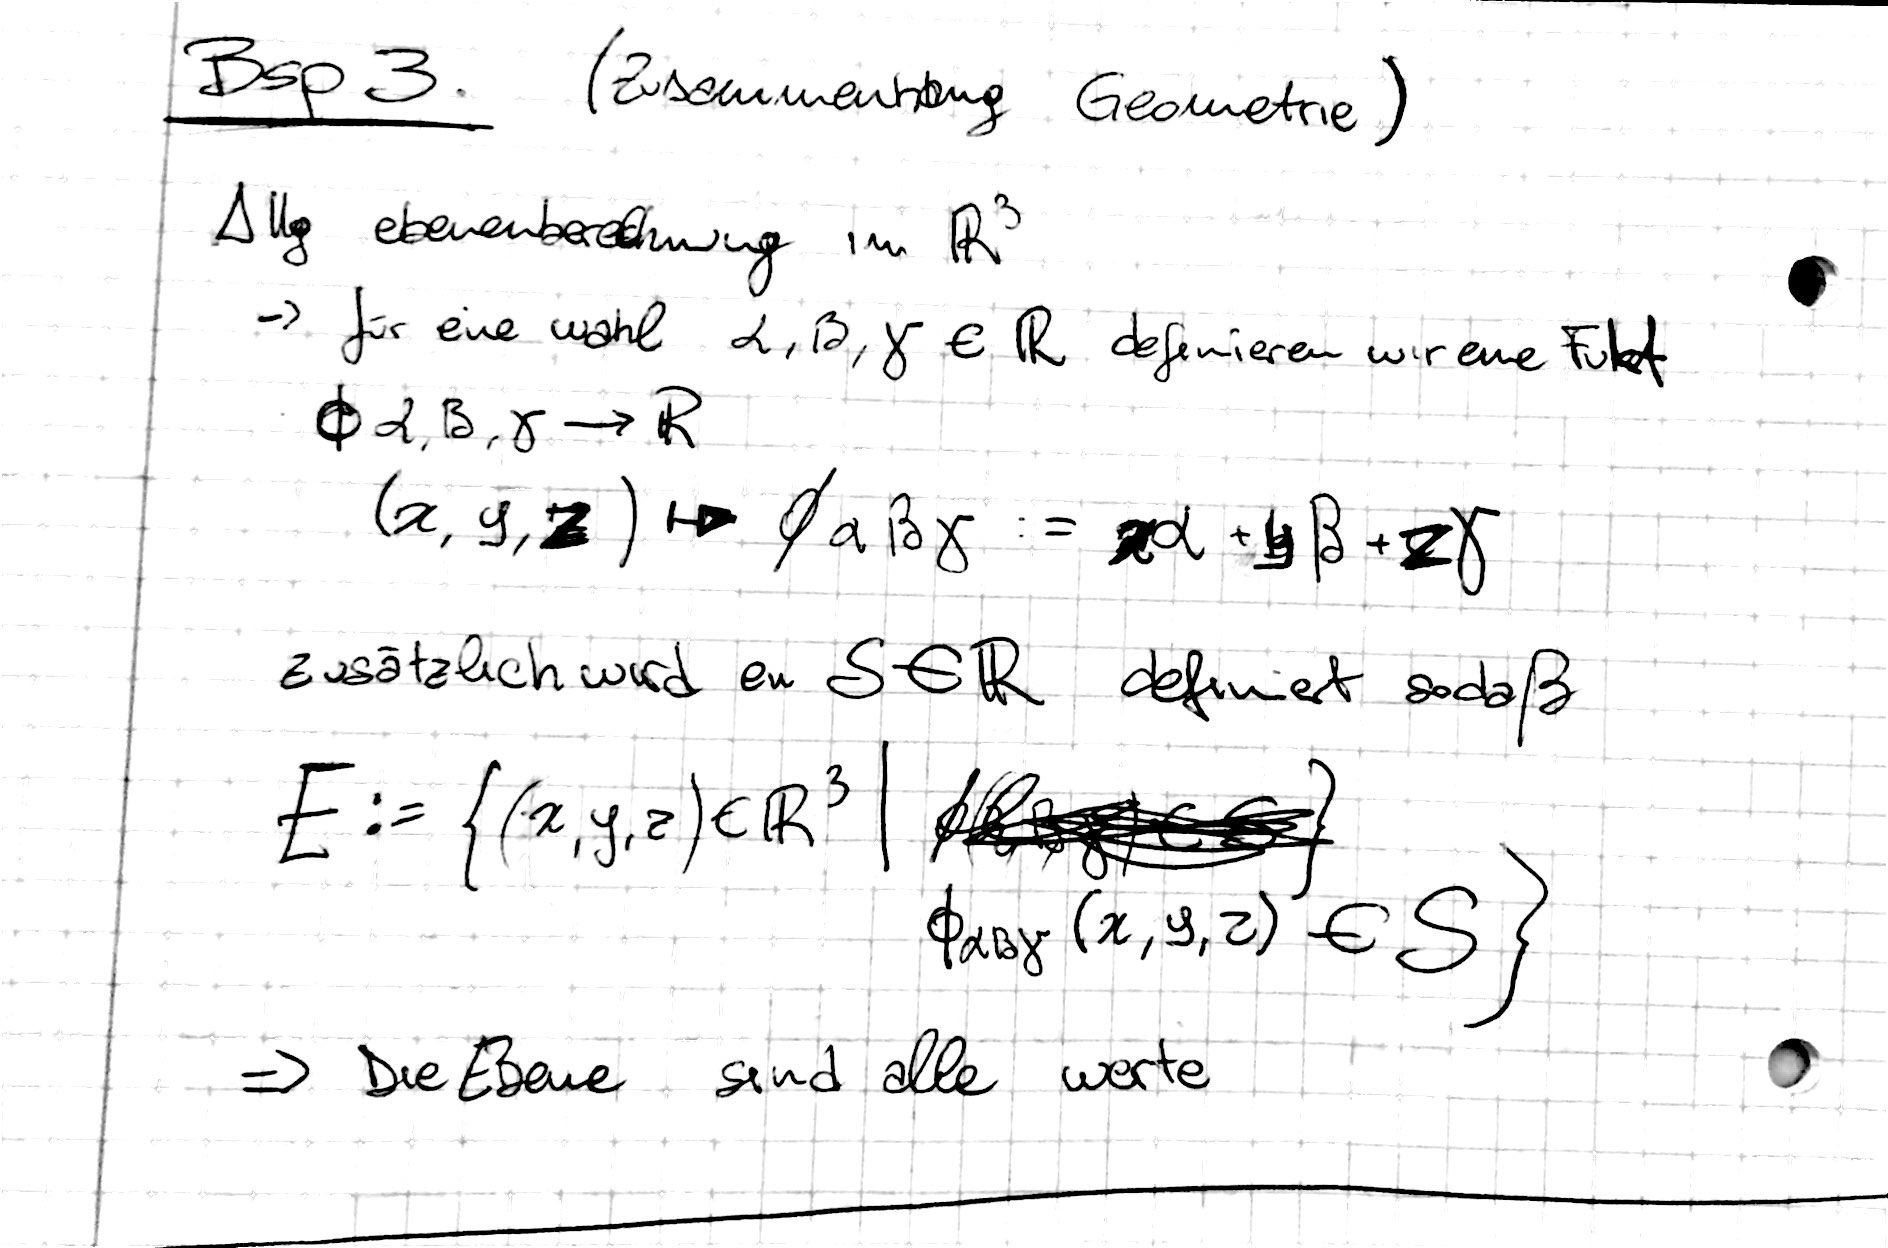 Bsp 3. (Zusammenhang Geometrie)
Allg ebenenberechnung im ℝ³
→ für eine wahl α, β, γ ∈ ℝ definieren wir eine Fukt
ϕ α, β, γ → ℝ
(x, y, z) ↦ ϕ α β γ := xα + yβ + zγ
zusätzlich wird en S ∈ ℝ definiert sodaß
E := {(x, y, z) ∈ ℝ³ |
ϕαβγ (x, y, z) ∈ S}
⇒ Die Ebene sind alle werte